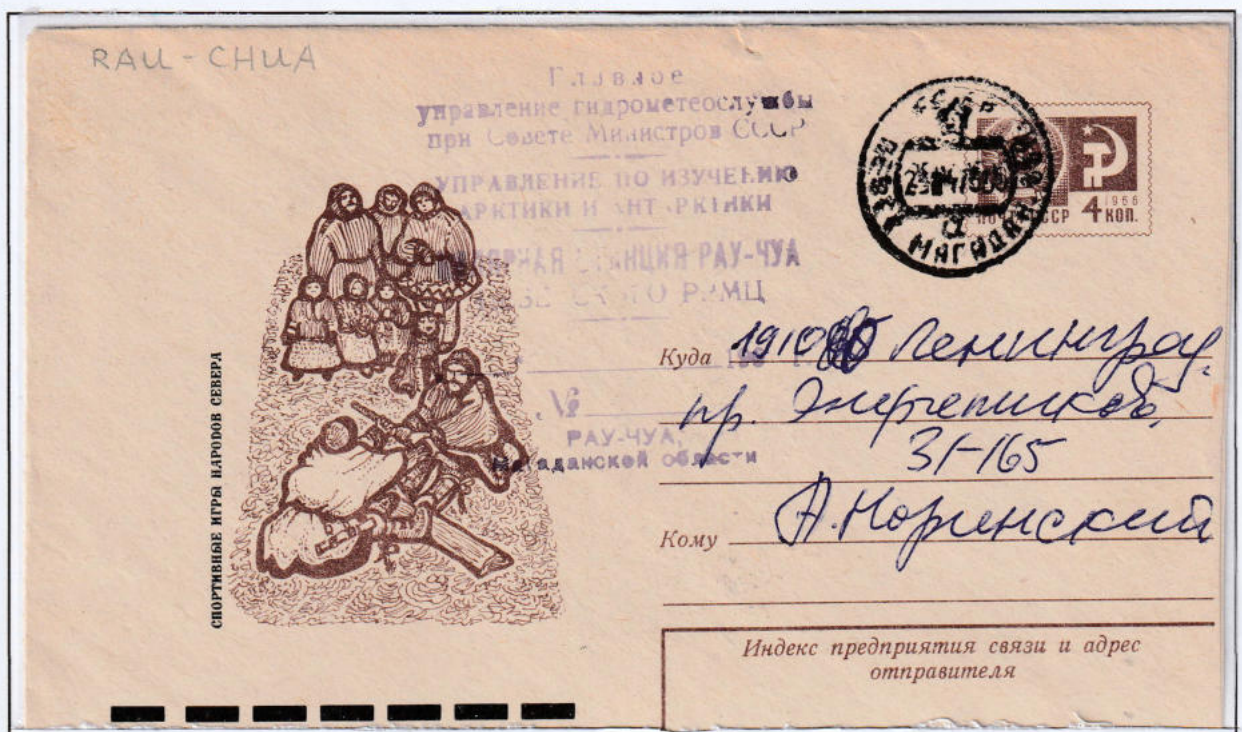 RAU-CHUA
Главное
управление гидрометеослужбы
при Совете Министров СССР
УПРАВЛЕНИЕ ПО ИЗУЧЕНИЮ
АРКТИКИ И АНТАРКТИКИ
СТАНЦИЯ РАУ-ЧУА
№
РАУ-ЧУА,
Магаданской области
СССР
МАГАДАН
1966
СССР 4 КОП.
СПОРТИВНЫЕ ИГРЫ НАРОДОВ СЕВЕРА
Куда Ленинград,
пр. Энергетиков,
31-165
Кому А. Норинский
Индекс предприятия связи и адрес
отправителя